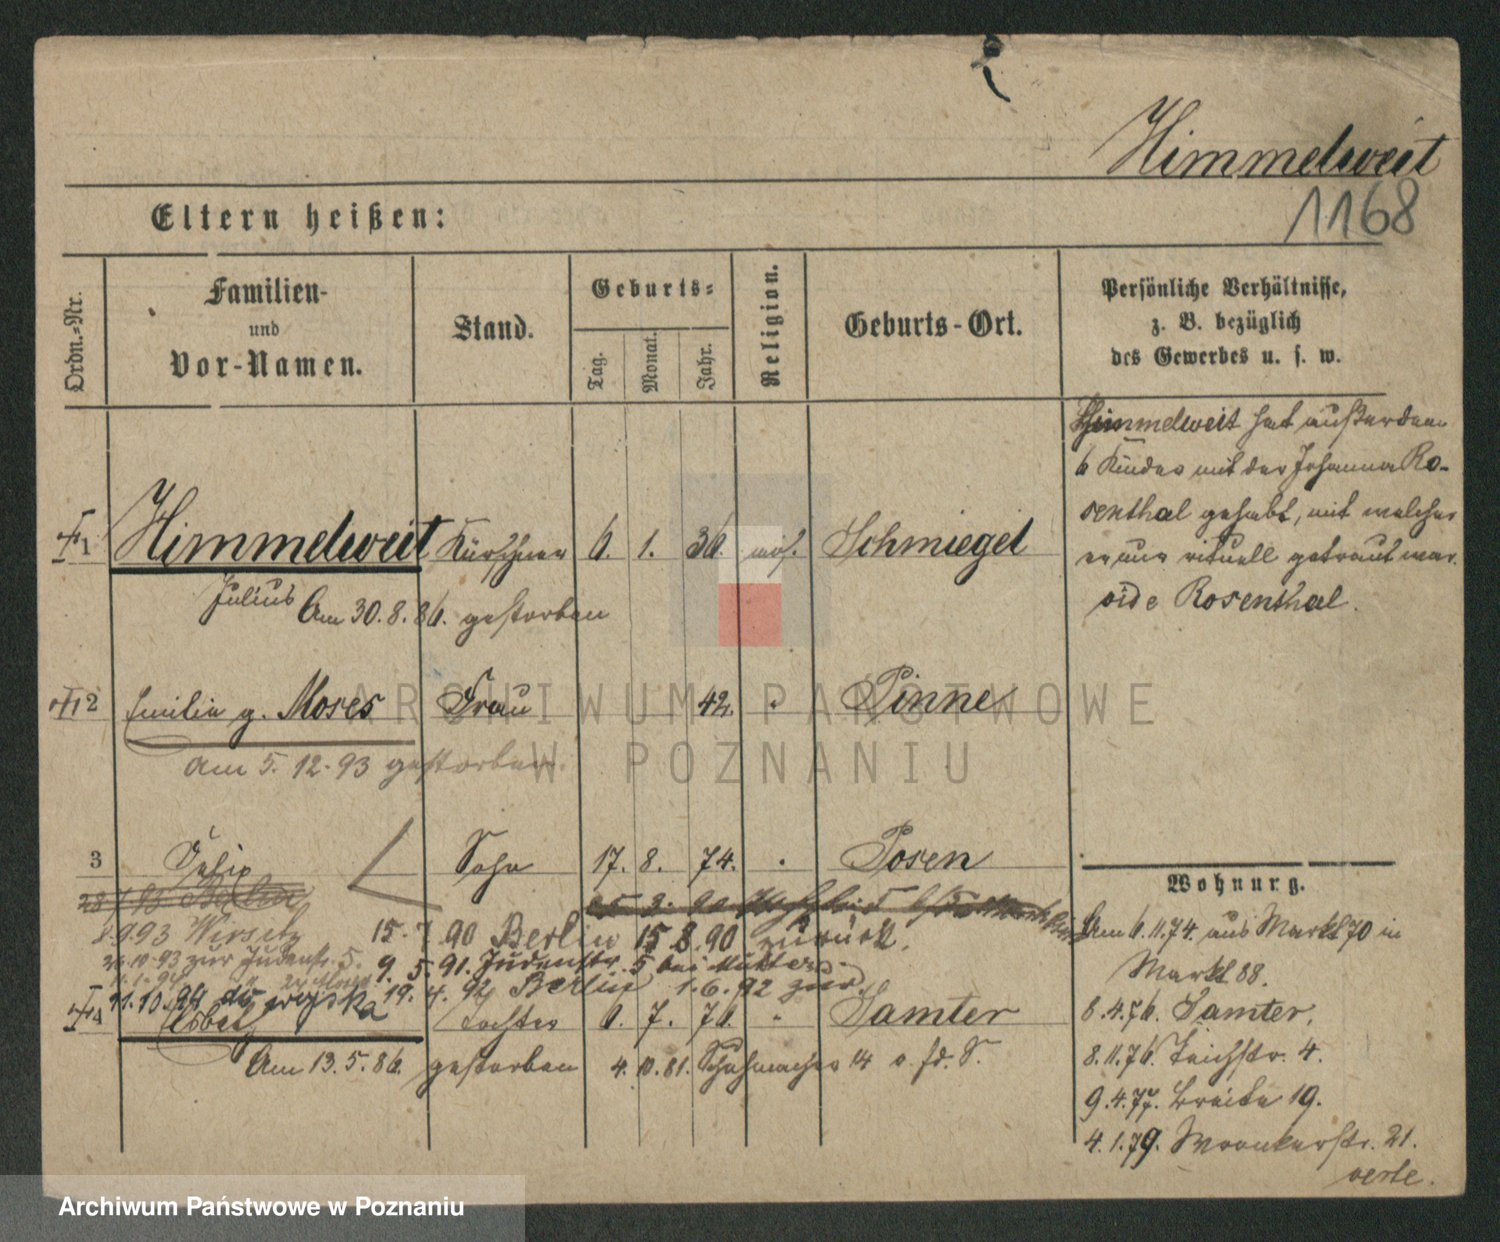 Himmelweit
1168
Eltern heißen:
Ordn.-Nr.
Familien-
und
Vor-Namen.
Stand.
Geburts-
Tag.
Monat.
Jahr.
Religion.
Geburts-Ort.
Persönliche Verhältnisse,
z. B. bezüglich
des Gewerbes u. s. w.
Himmelweit hat außerdem
6 Kinder mit der Johanna Ro-
senthal gehabt, mit welcher
er nur rituell getraut war.
vide Rosenthal.
1 Himmelweit Kürschner 6. 1. 36. mos. Schmiegel
Julius Am 30.8.86. gestorben
2 Emilie g. Moses Frau 42. " Pinne
am 5.12.93 gestorben.
3 Felix Sohn 17. 8. 74. " Posen
Berlin
8.9.93 Wirsitz 15.7.90 Berlin 15.8.90 zurück.
26.10.93 zur Judenstr. 5. 9.5.91. Judenstr. 5 bei Mutter.
11.10.94 19.4.92 Berlin 1.6.92 zur.
4 Tochter 6. 7. 76. " Samter
Am 13.5.86. gestorben 4.10.81. Schuhmacher 14
Wohnung.
Am 6.11.74. aus Markt 70 in
Markt 88.
8.4.76. Samter.
8.11.76. Teichstr. 4.
9.4.77. Breite 19.
4.1.79. Wronkerstr. 21.
verte.
ARCHIWUM PAŃSTWOWE
W POZNANIU
Archiwum Państwowe w Poznaniu